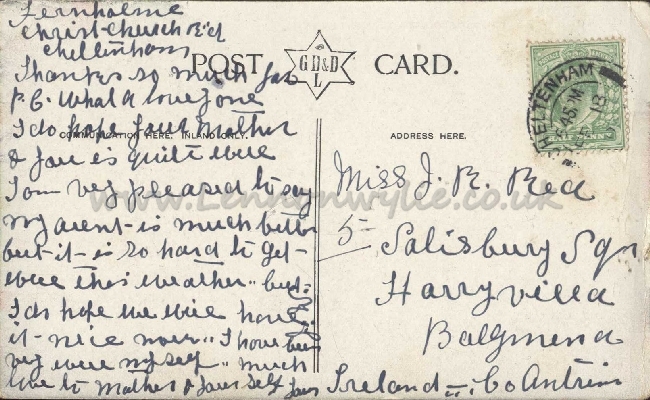 Fernholme
Christ Church Rd
Cheltenham
Thanks so much for
P.C. What a love one
I do hope your Mother
& your is quite well
I am very pleased to say
my arent is much better
but it is so hard to get
well this weather but
I do hope we will have
it nice now I have been
very well myself much
love to Mother & your self
POST CARD.
G D & D L
COMMUNICATION HERE. INLAND ONLY.
ADDRESS HERE.
CHELTENHAM
Miss J. R. Reid
5 Salisbury Sqr
Harryville
Ballymena
Ireland Co Antrim
www.Lennonwylie.co.uk